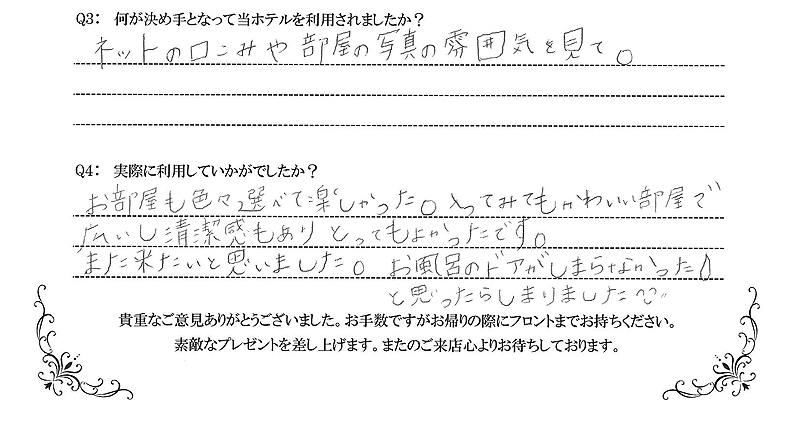 Q3: 何が決め手となって当ホテルを利用されましたか？
ネットの口こみや部屋の写真の雰囲気を見て。
Q4: 実際に利用していかがでしたか？
お部屋も色々選べて楽しかった。とってもかわいい部屋で
広いし清潔感もありとってもよかったです。
また来たいと思いました。お風呂のドアがしまらなかった
と思ったらしまりました
貴重なご意見ありがとうございました。お手数ですがお帰りの際にフロントまでお持ちください。
素敵なプレゼントを差し上げます。またのご来店心よりお待ちしております。